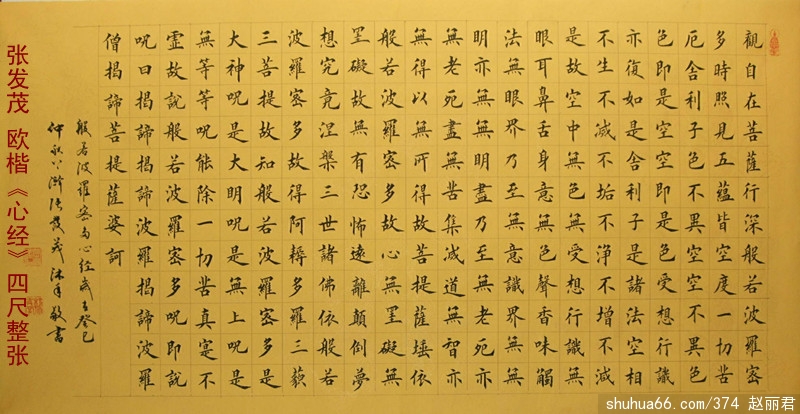 觀自在菩薩行深般若波羅密
多時照見五蘊皆空度一切苦
厄舍利子色不異空空不異色
色即是空空即是色受想行識
亦復如是舍利子是諸法空相
不生不滅不垢不淨不增不減
是故空中無色無受想行識無
眼耳鼻舌身意無色聲香味觸
法無眼界乃至無意識界無無
明亦無無明盡乃至無老死亦
無老死盡無苦集滅道無智亦
無得以無所得故菩提薩埵依
般若波羅密多故心無罣礙無
罣礙故無有恐怖遠離顛倒夢
想究竟涅槃三世諸佛依般若
波羅密多故得阿耨多羅三藐
三菩提故知般若波羅密多是
大神呪是大明呪是無上呪是
無等等呪能除一切苦真寔不
虛故說般若波羅密多呪即說
呪曰揭諦揭諦波羅揭諦波羅
僧揭諦菩提薩婆訶
般若波羅密多心經歲在癸巳
仲秋張發茂沐手敬書
张发茂 欧楷《心经》四尺整张
shuhua66.com/374 赵丽君